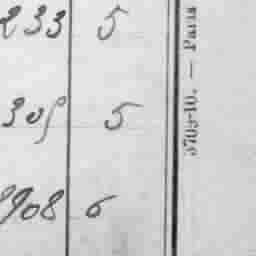 233 5
305 5
908 6
5705-10. — Paris